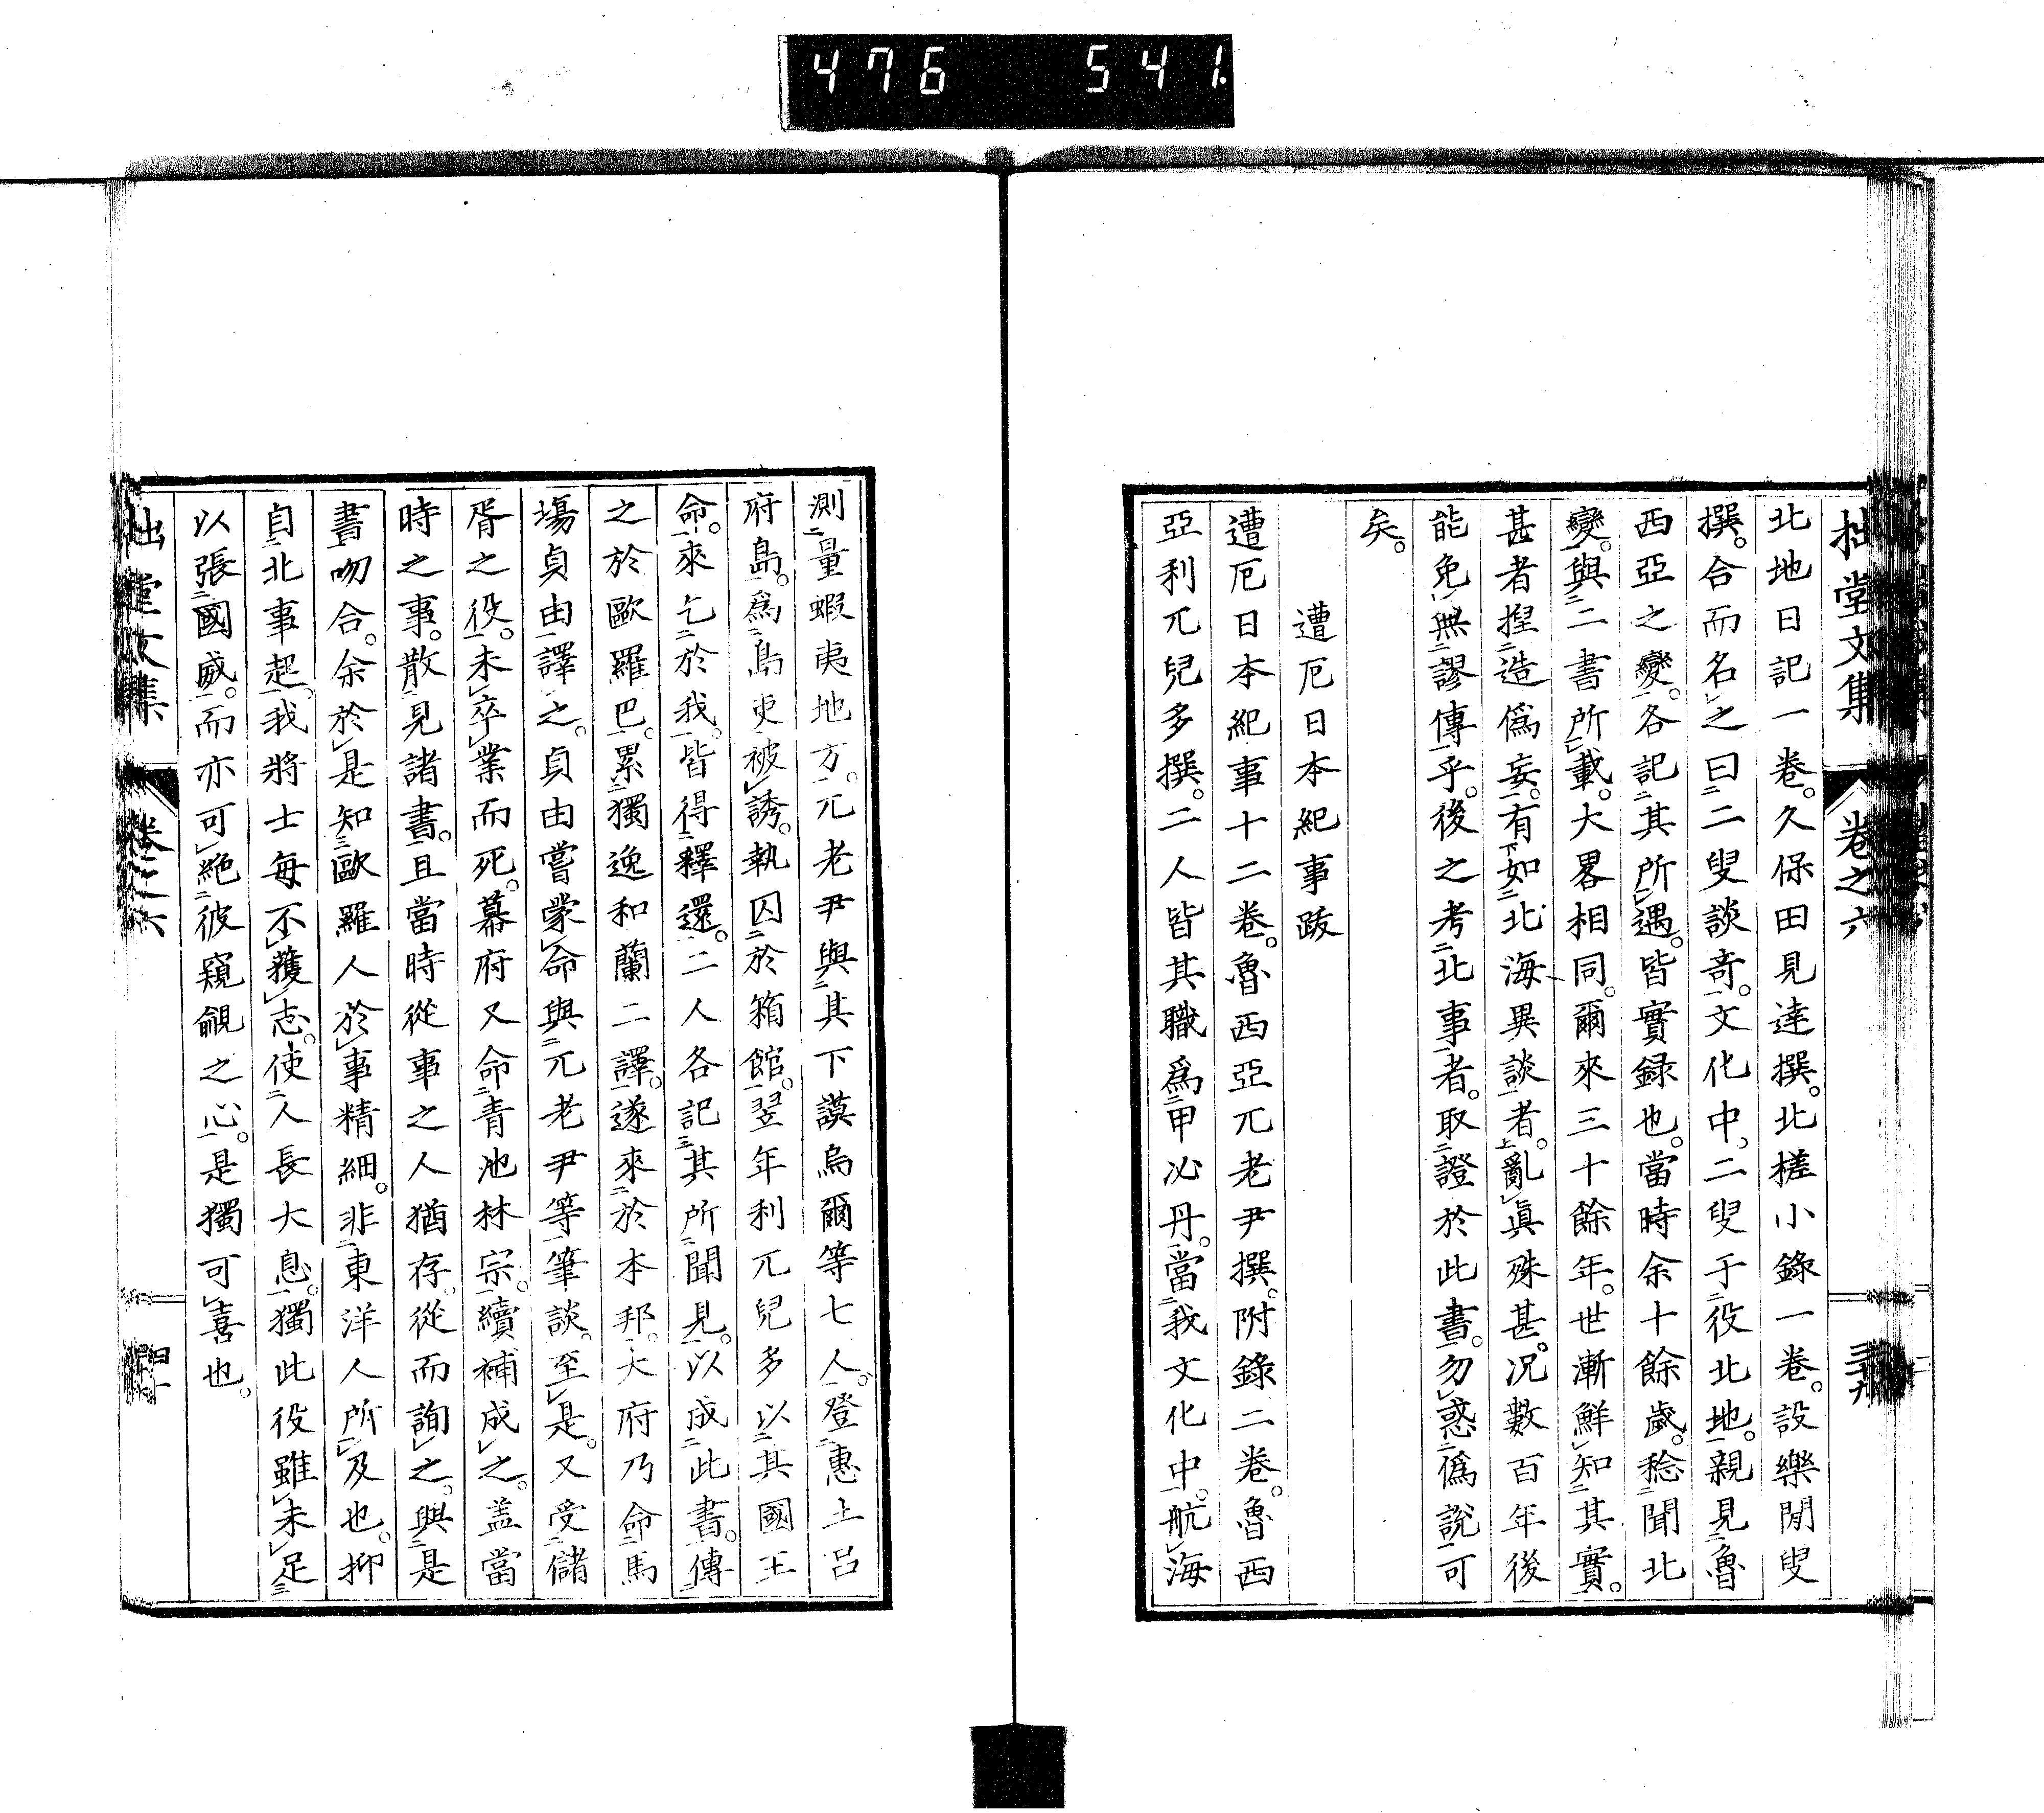 476 541.
拙堂文集 卷之六 三十九
北地日記一卷。久保田見達撰。北槎小錄一卷。設樂閒叟
撰。合而名之曰二叟談奇。文化中、二叟于役北地。親見魯
西亞之變。各記其所遇。皆實録也。當時余十餘歲。稔聞北
變。與二書所載。大畧相同。爾來三十餘年。世漸鮮知其實。
甚者揑造僞妄。有如北海異談者。亂眞殊甚。况數百年後
能免無謬傳乎。後之考北事者。取證於此書。勿惑僞說可
矣。
遭厄日本紀事跋
遭厄日本紀事十二卷。魯西亞兀老尹撰。附錄二卷。魯西
亞利兀兒多撰。二人皆其職爲甲必丹。當我文化中。航海
測量蝦夷地方。兀老尹與其下謨烏爾等七人。登惠土呂
府島。爲島吏被誘。執囚於箱館。翌年利兀兒多以其國王
命。來乞於我。皆得釋還。二人各記其所聞見。以成此書。傳
之於歐羅巴。累獨逸和蘭二譯。遂來於本邦。大府乃命馬
塲貞由譯之。貞由嘗蒙命與兀老尹等筆談。至是。又受儲
胥之役。未卒業而死。幕府又命青池林宗。續補成之。盖當
時之事。散見諸書。且當時從事之人猶存。從而詢之。與是
書吻合。余於是知歐羅人於事精細。非東洋人所及也。抑
自北事起。我將士每不獲志。使人長大息。獨此役雖未足
以張國威。而亦可絕彼窺覦之心。是獨可喜也。
拙堂文集 卷之六